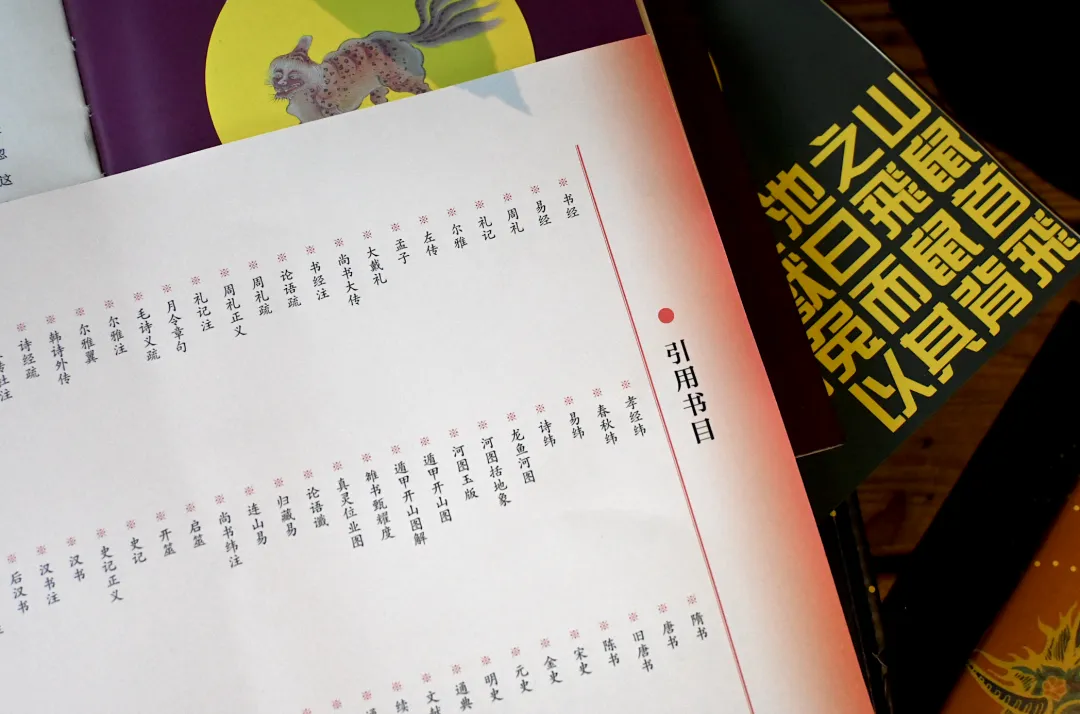 引用书目
书经
易经
周礼
礼记
尔雅
左传
孟子
大戴礼
尚书大传
书经注
论语疏
周礼疏
周礼正义
礼记注
月令章句
毛诗义疏
尔雅注
尔雅翼
韩诗外传
诗经疏
孝经纬
春秋纬
易纬
诗纬
龙鱼河图
河图括地象
河图玉版
遁甲开山图
遁甲开山图解
雒书甄耀度
真灵位业图
论语谶
归藏易
连山易
尚书纬注
启筮
开筮
史记
史记正义
汉书
汉书注
后汉书
隋书
唐书
旧唐书
陈书
宋史
金史
元史
明史
通典
山飛鼠
首飛
之
鼠背
日
而其
池
兔以
这